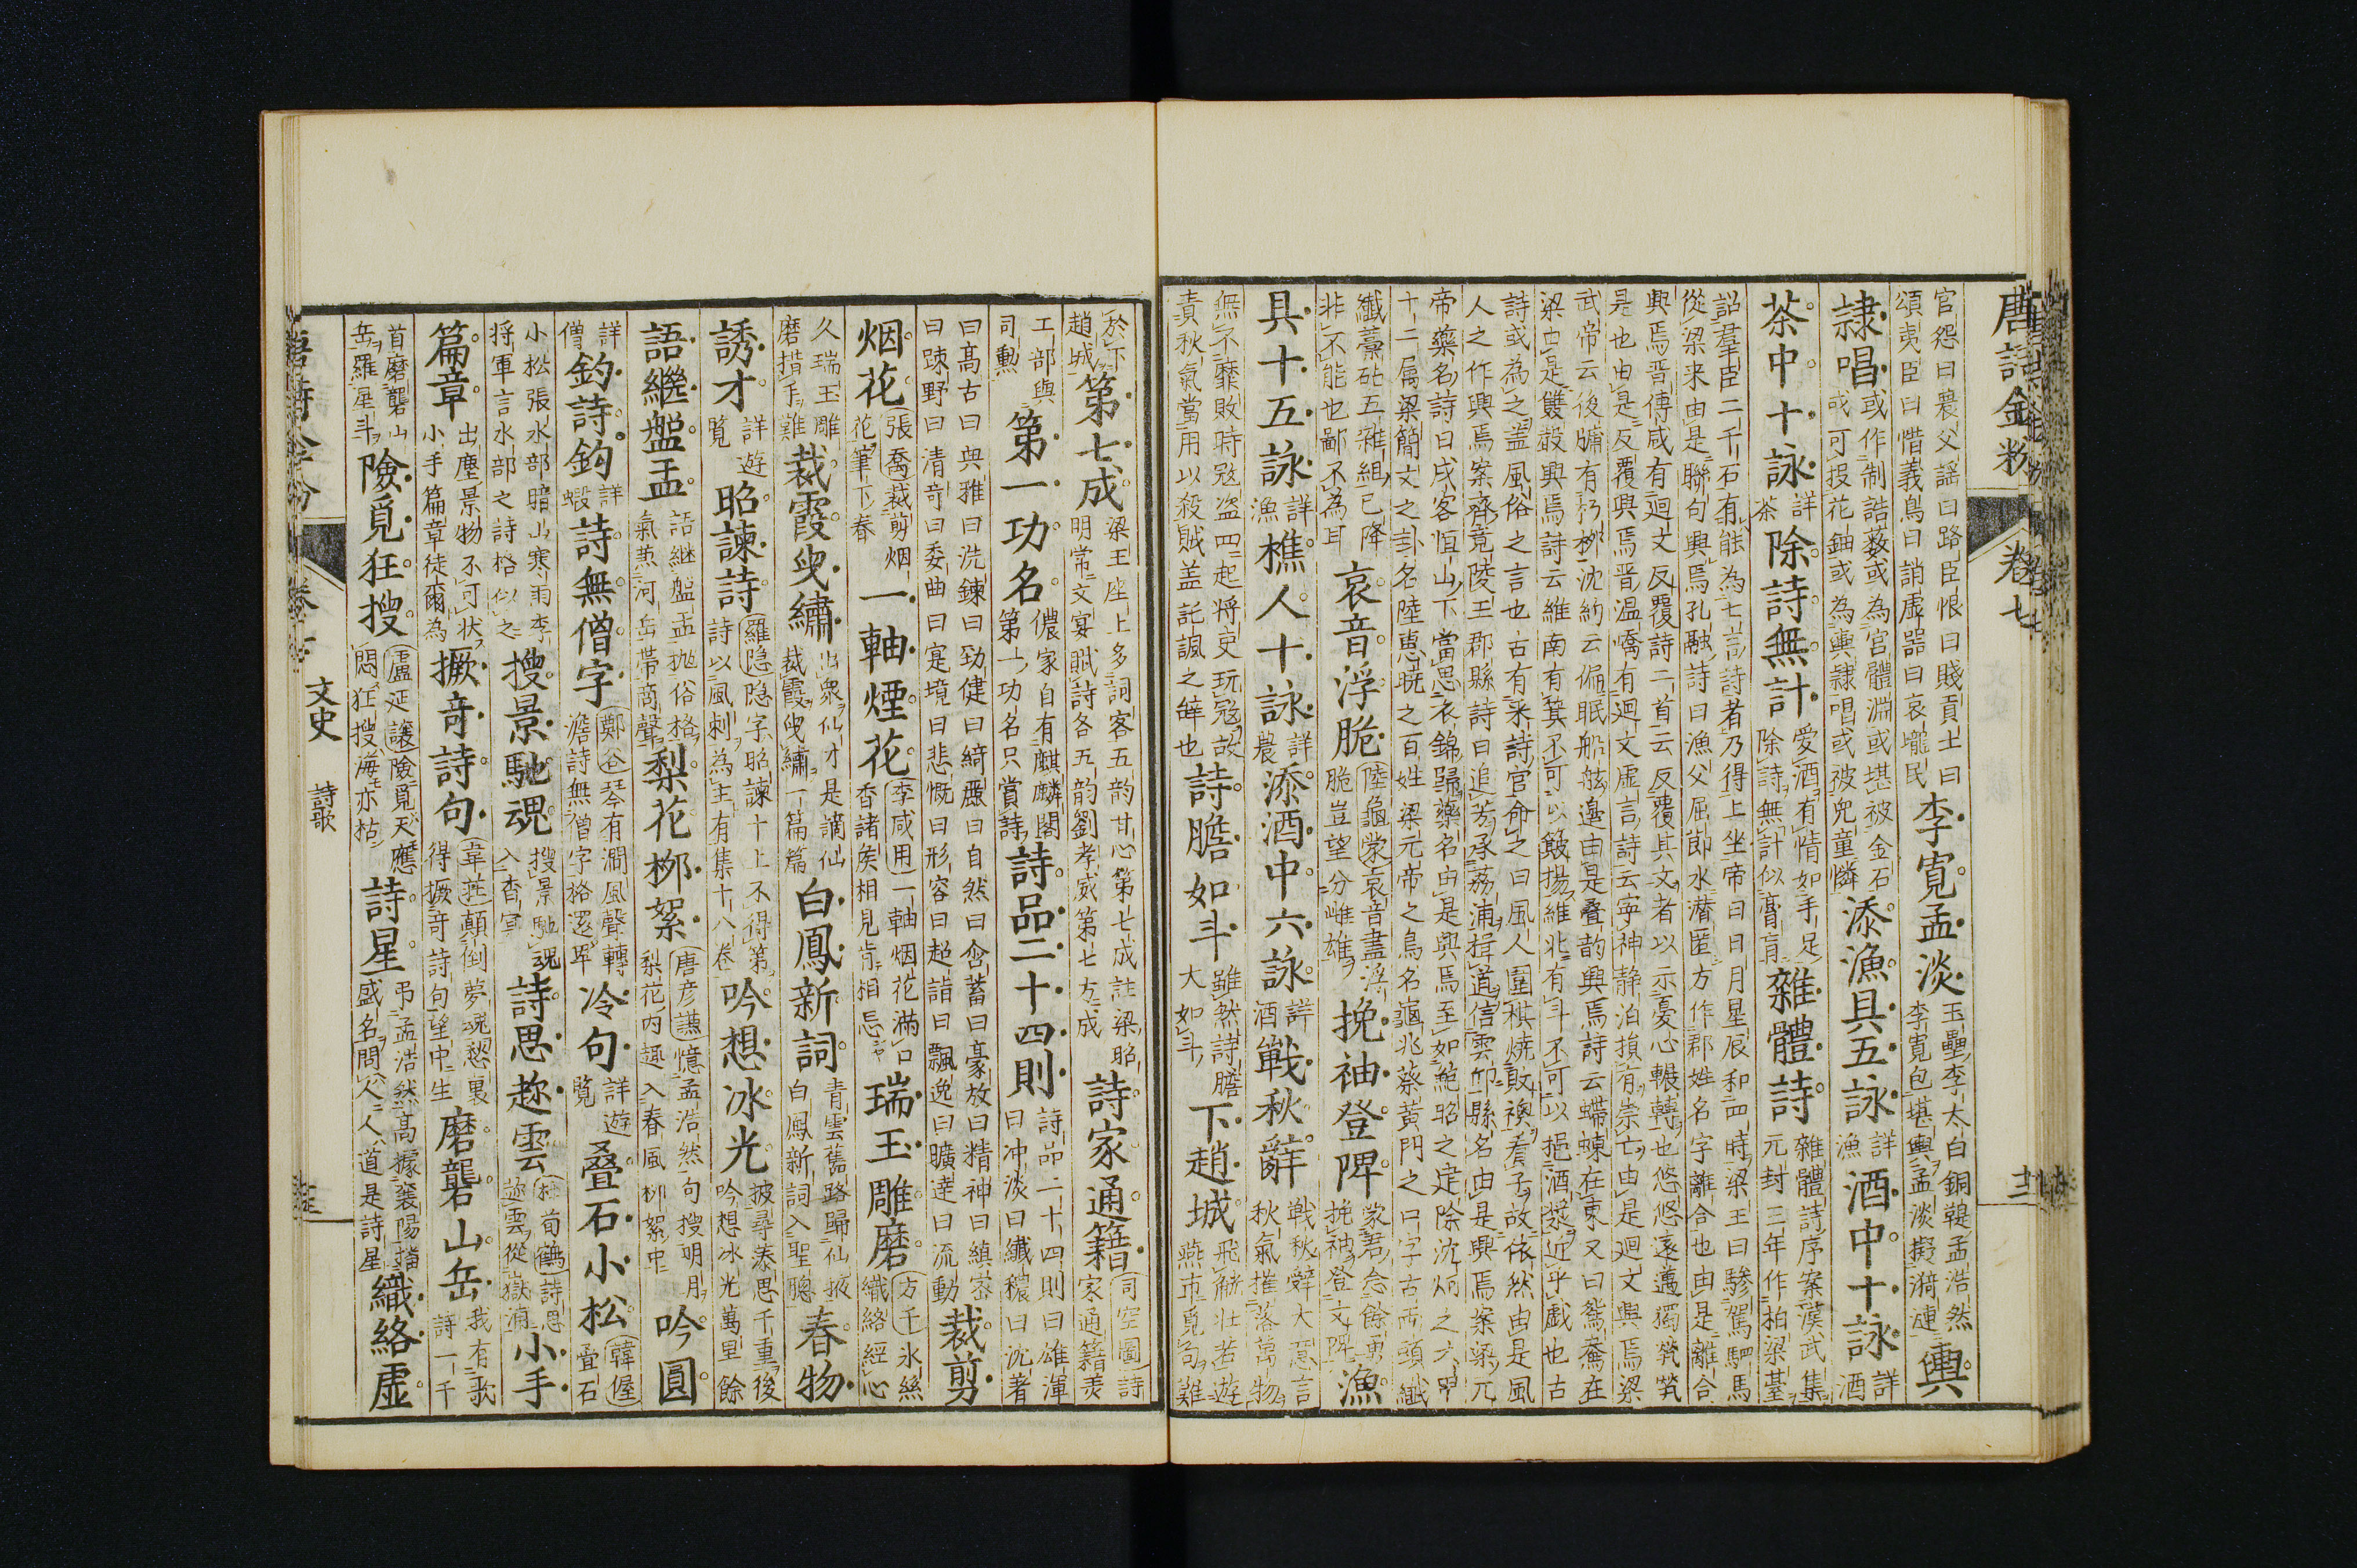 唐詩金粉 卷七 十二
官怨曰農父謡曰路臣恨曰賤貢士曰
頌夷臣曰惜義鳥曰誚虛器曰哀壠民
李寬孟淡
玉壘李太白銅鞮孟浩然
李寬包堪輿孟淡擬漪漣
輿
隷唱
或作制誥藪或為官體淵或堪被金石
或可投花鈿或為輿隷唱或被兒童憐
添漁具五詠
詳漁
酒中十詠
詳酒
茶中十詠
詳茶
除詩無計
愛酒有情如手足
除詩無計似膏肓
雜體詩
雜體詩序案漢武集
元封三年作柏梁臺
詔羣臣二千石有能為七言詩者乃得上坐帝曰日月星辰和四時梁王曰驂駕駟馬
從梁来由是聯句興焉孔融詩曰漁父屈節水潜匿方作郡姓名字離合也由是離合
興焉晋傅咸有廻文反覆詩二首云反覆其文者以示憂心輾轉也悠悠遠邁獨煢煢
是也由是反覆興焉晋温嶠有廻文虚言詩云寧神静泊損有崇亡由是廻文興焉梁
武帝云後牖有朽柳沈約云偏眠船舷邊由是叠韵興焉詩云蝃蝀在東又曰鴛鴦在
梁由是雙聲興焉詩云維南有箕不可以簸揚維北有斗不可以挹酒漿近乎戯也古
詩或為之盖風俗之言也古有采詩官命之曰風人圍棋燒敗襖看子故依然由是風
人之作興焉案齊竟陵王郡縣詩曰追芳承荔浦揖道信雲丘縣名由是興焉案梁元
帝藥名詩曰戍客恒山下當思衣錦歸藥名由是興焉至如鮑昭之建除沈炯之六甲
十二属梁簡文之卦名陸惠曉之百姓梁元帝之鳥名龜兆蔡黄門之口字古兩頭纖
纖藁砧五雜組已降
非不能也鄙不為耳
哀音浮脆
陸龜蒙哀音盡浮
脆豈望分雌雄
挽袖登陴
家君念餘勇
挽袖登文陴
漁
具十五詠
詳漁
樵人十詠
詳農
添酒中六詠
詳酒
戰秋辭
戰秋辤大意言
秋氣摧落萬物
無不靡敗時冦盗四起将吏玩冦故
責秋氣當用以殺賊盖託諷之辤也
詩膽如斗
雖然詩膽
大如斗
下趙城
飛觥壮苦遊
燕市覓句難
於下
趙城
第七成
梁王座上多詞客五韵甘心第七成註梁昭
明常文宴賦詩各五韵劉孝威第七方成
詩家通籍
司空圖詩
家通籍美
工部與
司勲
第一功名
儂家自有麒麟閣
第一功名只賞詩
詩品二十四則
詩品二十四則曰雄渾
曰冲淡曰纖穠曰沈著
曰髙古曰典雅曰洗鍊曰勁健曰綺麗曰自然曰含蓄曰豪放曰精神曰縝密
曰疎野曰清竒曰委曲曰寔境曰悲慨曰形容曰超詣曰飄逸曰曠達曰流動
裁剪
烟花
張喬裁剪烟
花筆下春
一軸煙花
李咸用一軸烟花滿口
香諸矦相見肯相忘
瑞玉雕磨
方干氷絲
織絡經心
久瑞玉雕
磨措手難
裁霞曵繡
出衆仙才是謫仙
裁霞曵繡一篇篇
白鳳新詞
青雲舊路歸仙掖
白鳳新詞入聖聰
春物
誘才
詳遊
覧
昭諫詩
羅隠隠字昭諫十上不得第
詩以風刺為主有集十八卷
吟想冰光
披尋藻思千重後
吟想冰光萬里餘
語繼盤盂
語継盤盂抛俗格
氣熏河岳帶商聲
梨花栁絮
唐彦謙憶孟浩然句搜明月
梨花内趣入春風栁絮中
吟圓
詳
僧
釣詩鈎
詳
蝦
詩無僧字
鄭谷琴有澗風聲轉
澹詩無僧字格還卑
冷句
詳遊
覧
叠石小松
韓偓
叠石
小松張水部暗山寒雨李
将軍言水部之詩格似之
搜景馳魂
搜景馳魂
入杳冥
詩思趂雲
杜荀鶴詩思
趂雲從嶽浦
小手
篇章
出塵景物不可状
小手篇章徒爾為
撅竒詩句
韋莊顛倒夢魂愁裏
得撅竒詩句望中生
磨礱山岳
我有歌
詩一千
首磨礱山
岳羅星斗
險覓狂搜
盧延讓險覓天應
悶狂搜海亦枯
詩星
弔孟浩然髙據襄陽播
盛名問人人道是詩星
織絡虚
文史 詩歌